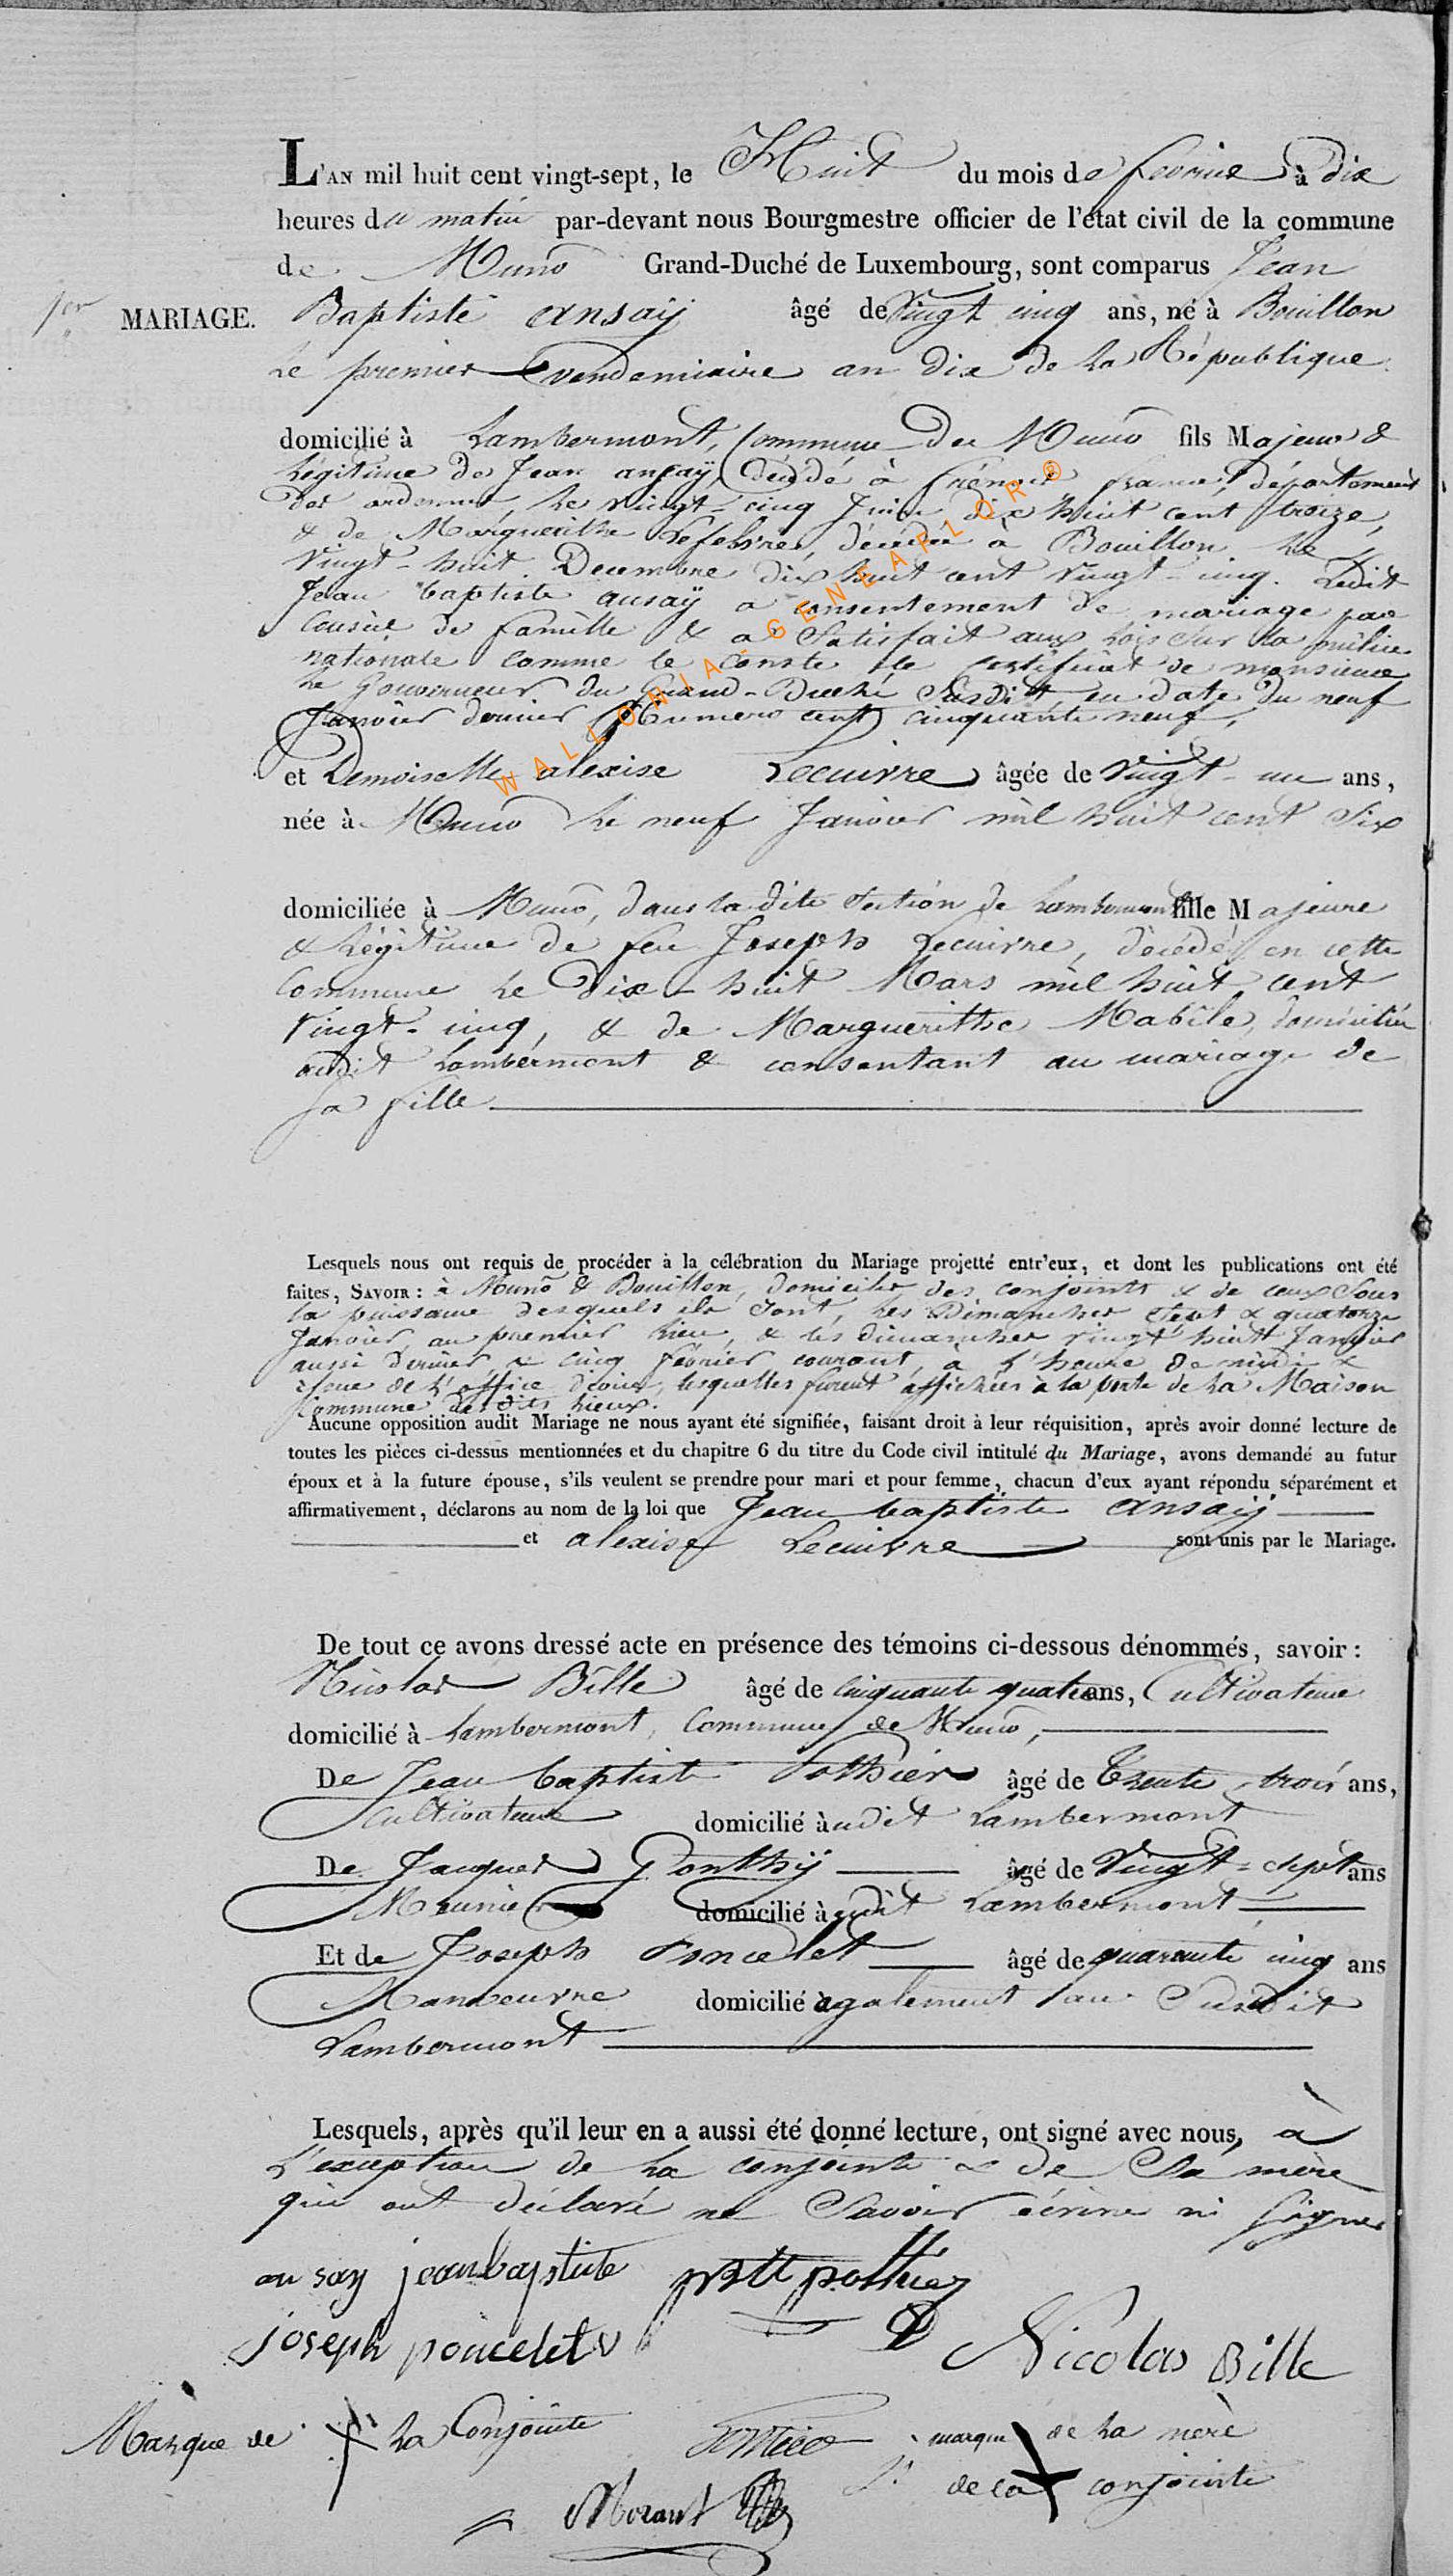 L'AN mil huit cent vingt-sept, le Huit du mois de fevrier à dix
heures du matin par-devant nous Bourgmestre officier de l'état civil de la commune
de Muno Grand-Duché de Luxembourg, sont comparus Jean
1er MARIAGE. Baptiste ansaÿ âgé de vingt cinq ans, né à Bouillon
Le premier vendemiaire an dix de la République
domicilié à Lambermont, Commune de Muno fils Majeur &
Légitime de Jean ansaÿ, décédé à france, département
des ardennes, le vingt-cinq Juin dix huit cent treize,
& de Marguerithe Lefebvre, décédée à Bouillon le
vingt-huit Decembre dix huit cent vingt-cinq. Ledit
Jean baptiste ansaÿ a consentement de mariage par
Conseil de famille & a Satisfait aux lois sur la milice
nationale comme le conste le certificat de monsieur
Le Gouverneur du Grand-Duché Susdit, en date du neuf
Janvier dernier Numero cent cinquante neuf,
et Demoiselle alexise Lecuivre âgée de vingt-un ans,
née à Muno le neuf Janvier mil huit cent Six
domiciliée à Muno, dans la dite Section de Lambermont fille Majeure
& Légitime de feu Joseph Lecuivre, décédé en cette
Commune le dix-huit Mars mil huit cent
vingt-cinq, & de Marguerithe Mabile, domiciliée
audit Lambermont & consentant au mariage de
Sa fille
Lesquels nous ont requis de procéder à la célébration du Mariage projetté entr'eux, et dont les publications ont été
faites, SAVOIR : à Muno & Bouillon, domiciles des conjoints & de ceux Sous
la puissance desquels ils Sont, les Dimanches Sept & quatorze
Janvier, au premier lieu, & les dimanches vingt huit Janvier
aussi dernier & cinq février courant, à l'heure de midi &
issue de l'office divin, lesquelles furent affichées à la porte de la Maison
Commune desdits lieux.
Aucune opposition audit Mariage ne nous ayant été signifiée, faisant droit à leur réquisition, après avoir donné lecture de
toutes les pièces ci-dessus mentionnées et du chapitre 6 du titre du Code civil intitulé du Mariage, avons demandé au futur
époux et à la future épouse, s'ils veulent se prendre pour mari et pour femme, chacun d'eux ayant répondu séparément et
affirmativement, déclarons au nom de la loi que Jean baptiste ansaÿ
et alexise Lecuivre sont unis par le Mariage.
De tout ce avons dressé acte en présence des témoins ci-dessous dénommés, savoir :
Nicolas Bille âgé de cinquante quatre ans, Cultivateur
domicilié à Lambermont, Commune de Muno,
De Jean baptiste Pothier âgé de Trente trois ans,
Cultivateur domicilié audit Lambermont
De Jacques Gonthÿ âgé de vingt-sept ans
Meunier domicilié audit Lambermont
Et de Joseph Poncelet âgé de quarante cinq ans
Manoeuvre domicilié également au Susdit
Lambermont
Lesquels, après qu'il leur en a aussi été donné lecture, ont signé avec nous, à
L'exception de la conjointe & de Sa mère
qui ont déclaré ne Savoir écrire ni signer
an say jean baptiste jBtt pothier
joseph poncelet Nicolas Bille
Marque de la Conjointe marque de la mère
de la conjointe
Morant
WALLONIA-GENEAFLOR®